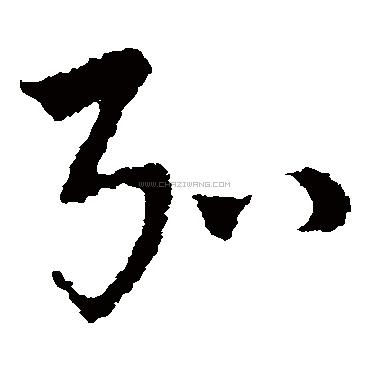 弘
WWW.CHAZIWANG.COM